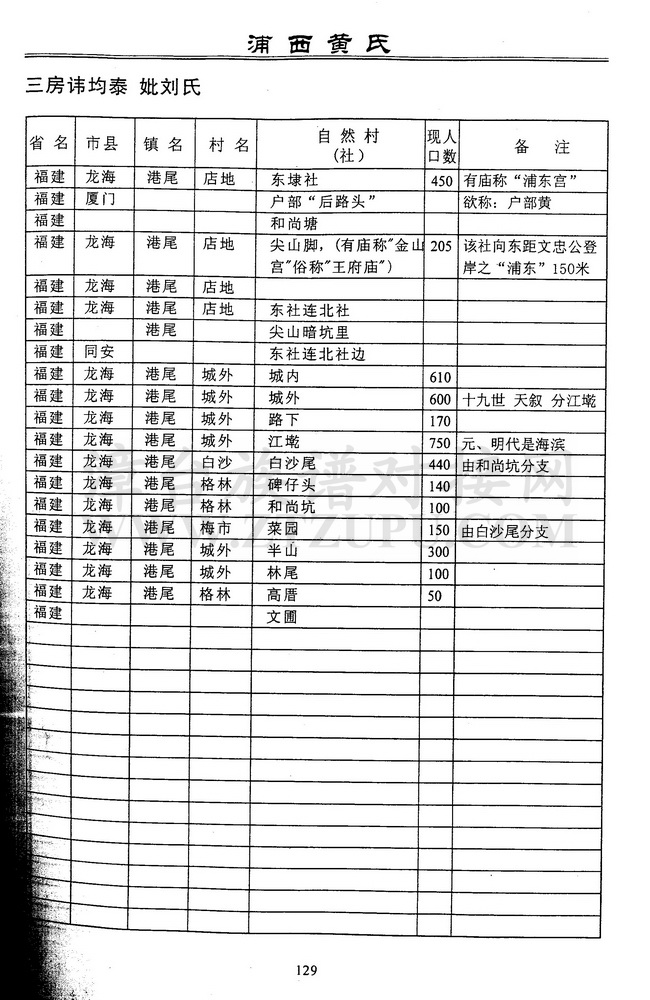 浦西黄氏
三房讳均泰 妣刘氏
省名 市县 镇名 村名 自然村(社) 现人口数 备注
福建 龙海 港尾 店地 东埭社 450 有庙称“浦东宫”
福建 厦门 户部“后路头” 欲称：户部黄
福建 和尚塘
福建 龙海 港尾 店地 尖山脚，(有庙称"金山 205 该社向东距文忠公登
宫"俗称"王府庙") 岸之“浦东”150米
福建 龙海 港尾 店地
福建 龙海 港尾 店地 东社连北社
福建 港尾 尖山暗坑里
福建 同安 东社连北社边
福建 龙海 港尾 城外 城内 610
福建 龙海 港尾 城外 城外 600 十九世 天叙 分江墘
福建 龙海 港尾 城外 路下 170
福建 龙海 港尾 城外 江墘 750 元、明代是海滨
福建 龙海 港尾 白沙 白沙尾 440 由和尚坑分支
福建 龙海 港尾 格林 碑仔头 140
福建 龙海 港尾 格林 和尚坑 100
福建 龙海 港尾 梅市 菜园 150 由白沙尾分支
福建 龙海 港尾 城外 半山 300
福建 龙海 港尾 城外 林尾 100
福建 龙海 港尾 格林 高厝 50
福建 文圃
129